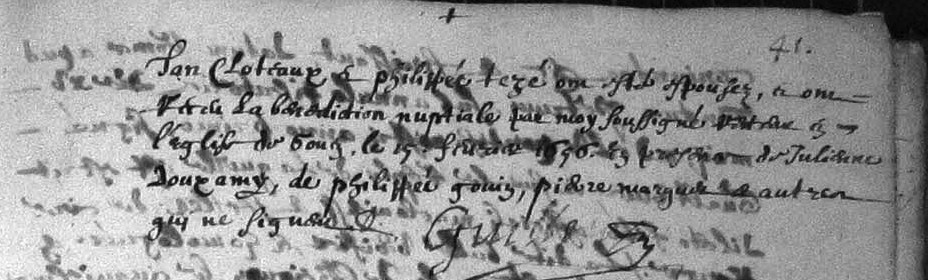 41.
Jan Cloteaux & philippée tezé ont estés espousez, & ont
receu la bénédiction nuptiale par moy soussigné en
l'église de le 15e février 1656. en présence de Julienne
Douxamy, de philippée gouin, pierre et autres
qui ne signent